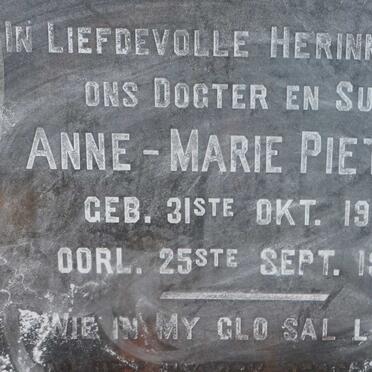 IN LIEFDEVOLLE HERINN
ONS DOGTER EN SU
ANNE-MARIE PIET
GEB. 31STE OKT. 19
OORL. 25STE SEPT. 19
WIE IN MY GLO SAL L